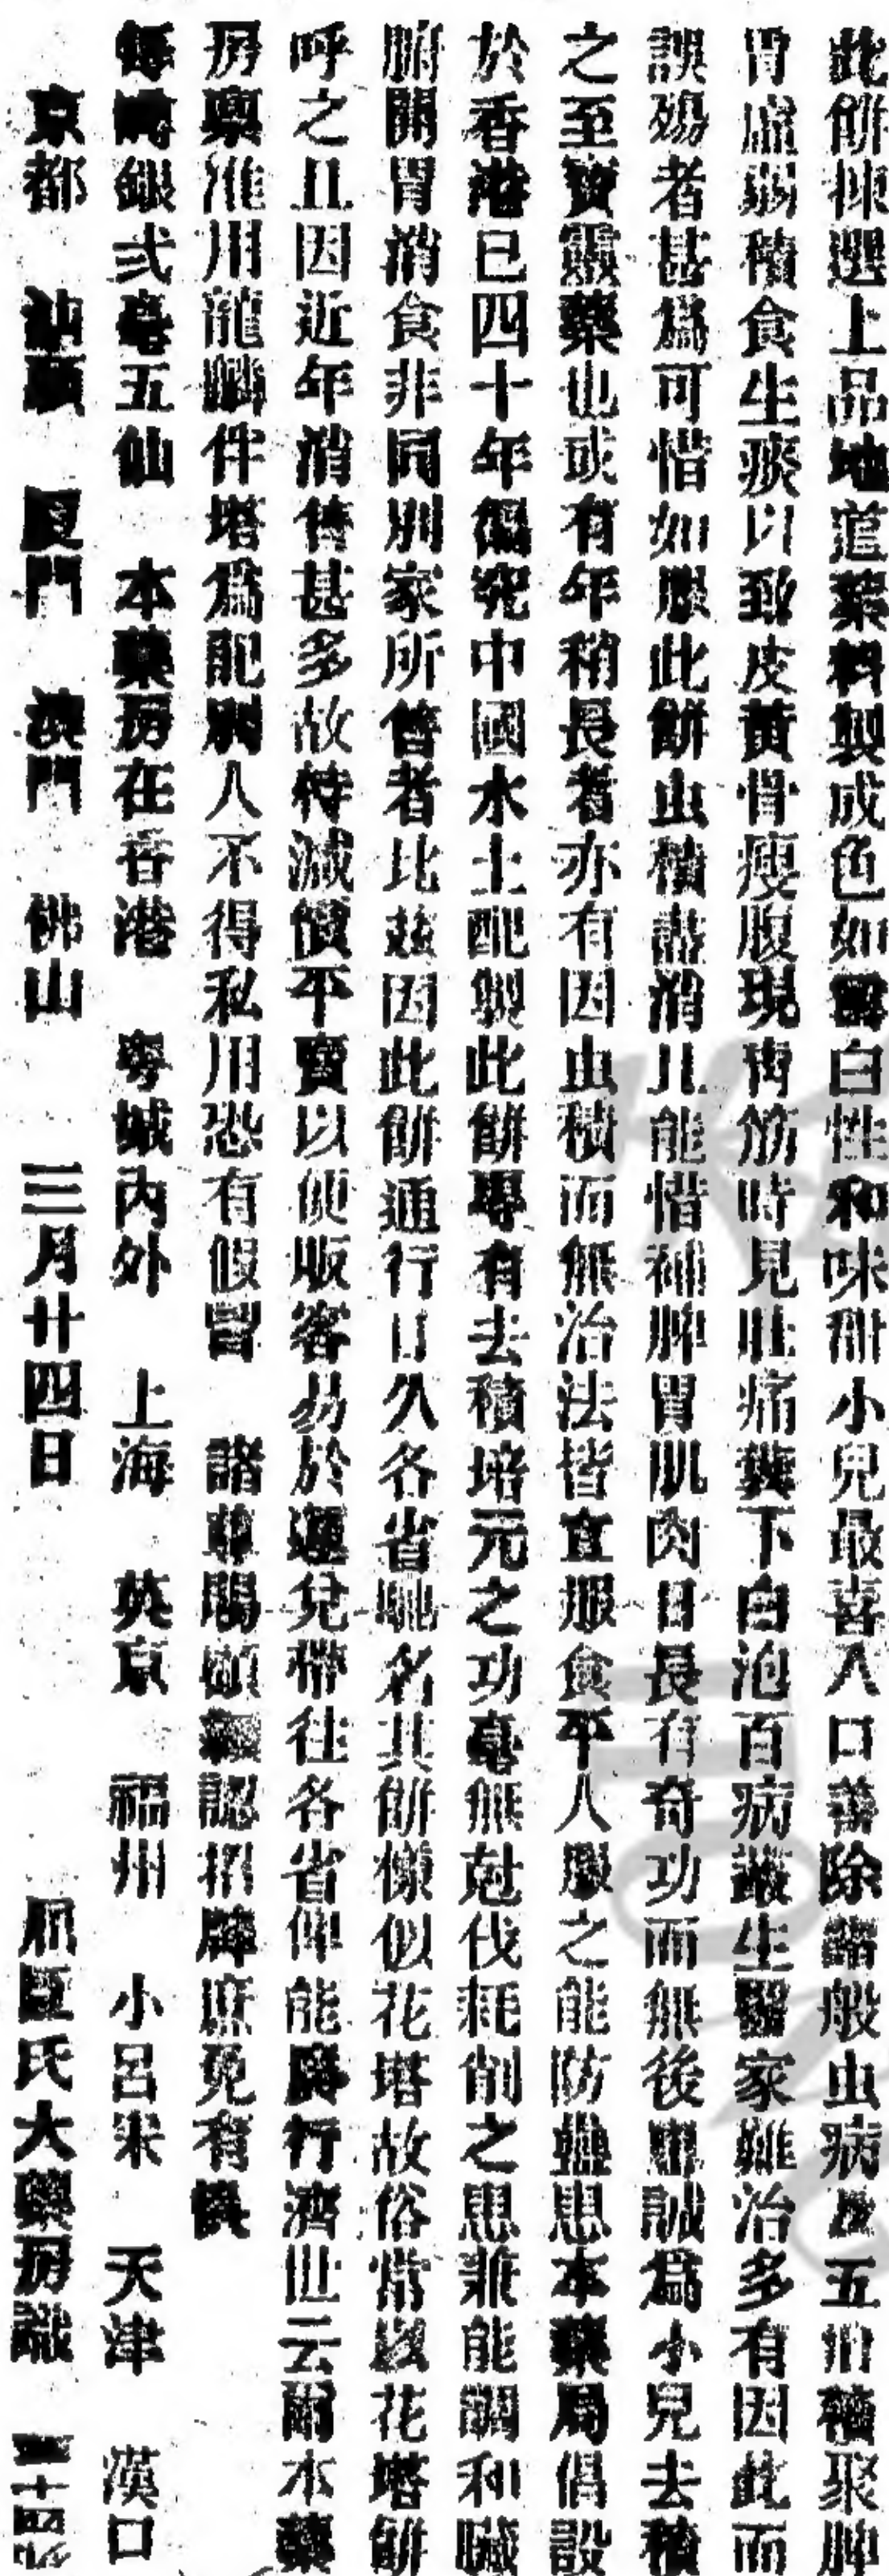 此餅揀選上品地道藥料製成色如雪白性和味甜小兒最喜入口善除諸般虫病及五疳積聚脾
胃虛弱積食生痰以致皮黃骨瘦腹現靑筋時見肚痛糞下白泡百病叢生醫家難治多有因此而
誤殤者甚爲可惜如服此餅虫積盡消且能惜補脾胃肌肉日長有奇功而無後患誠爲小兒去積
之至寶靈藥也或有年稍長者亦有因虫積而無治法皆宜服食平人服之能防蠱患本藥局倡設
於香港已四十年徧究中國水土配製此餅專有去積培元之功毫無尅伐耗削之患兼能調和臟
腑開胃消食非同別家所售者比茲因此餅通行日久各省馳名其餅樣似花塔故俗常以花塔餅
呼之且因近年消售甚多故特減價平賣以便販客易於運兌帶往各省俾能廣行濟世云爾本藥
房稟准用龍麟伴塔爲記別人不得私用恐有假冒 諸尊賜顧須認招牌庶免有悞
每磅銀弍毫五仙 本藥房在香港 粤城內外 上海 英京 福州 小呂宋 天津 漢口
京都 汕頭 厦門 澳門 佛山 三月廿四日 屈臣氏大藥房識